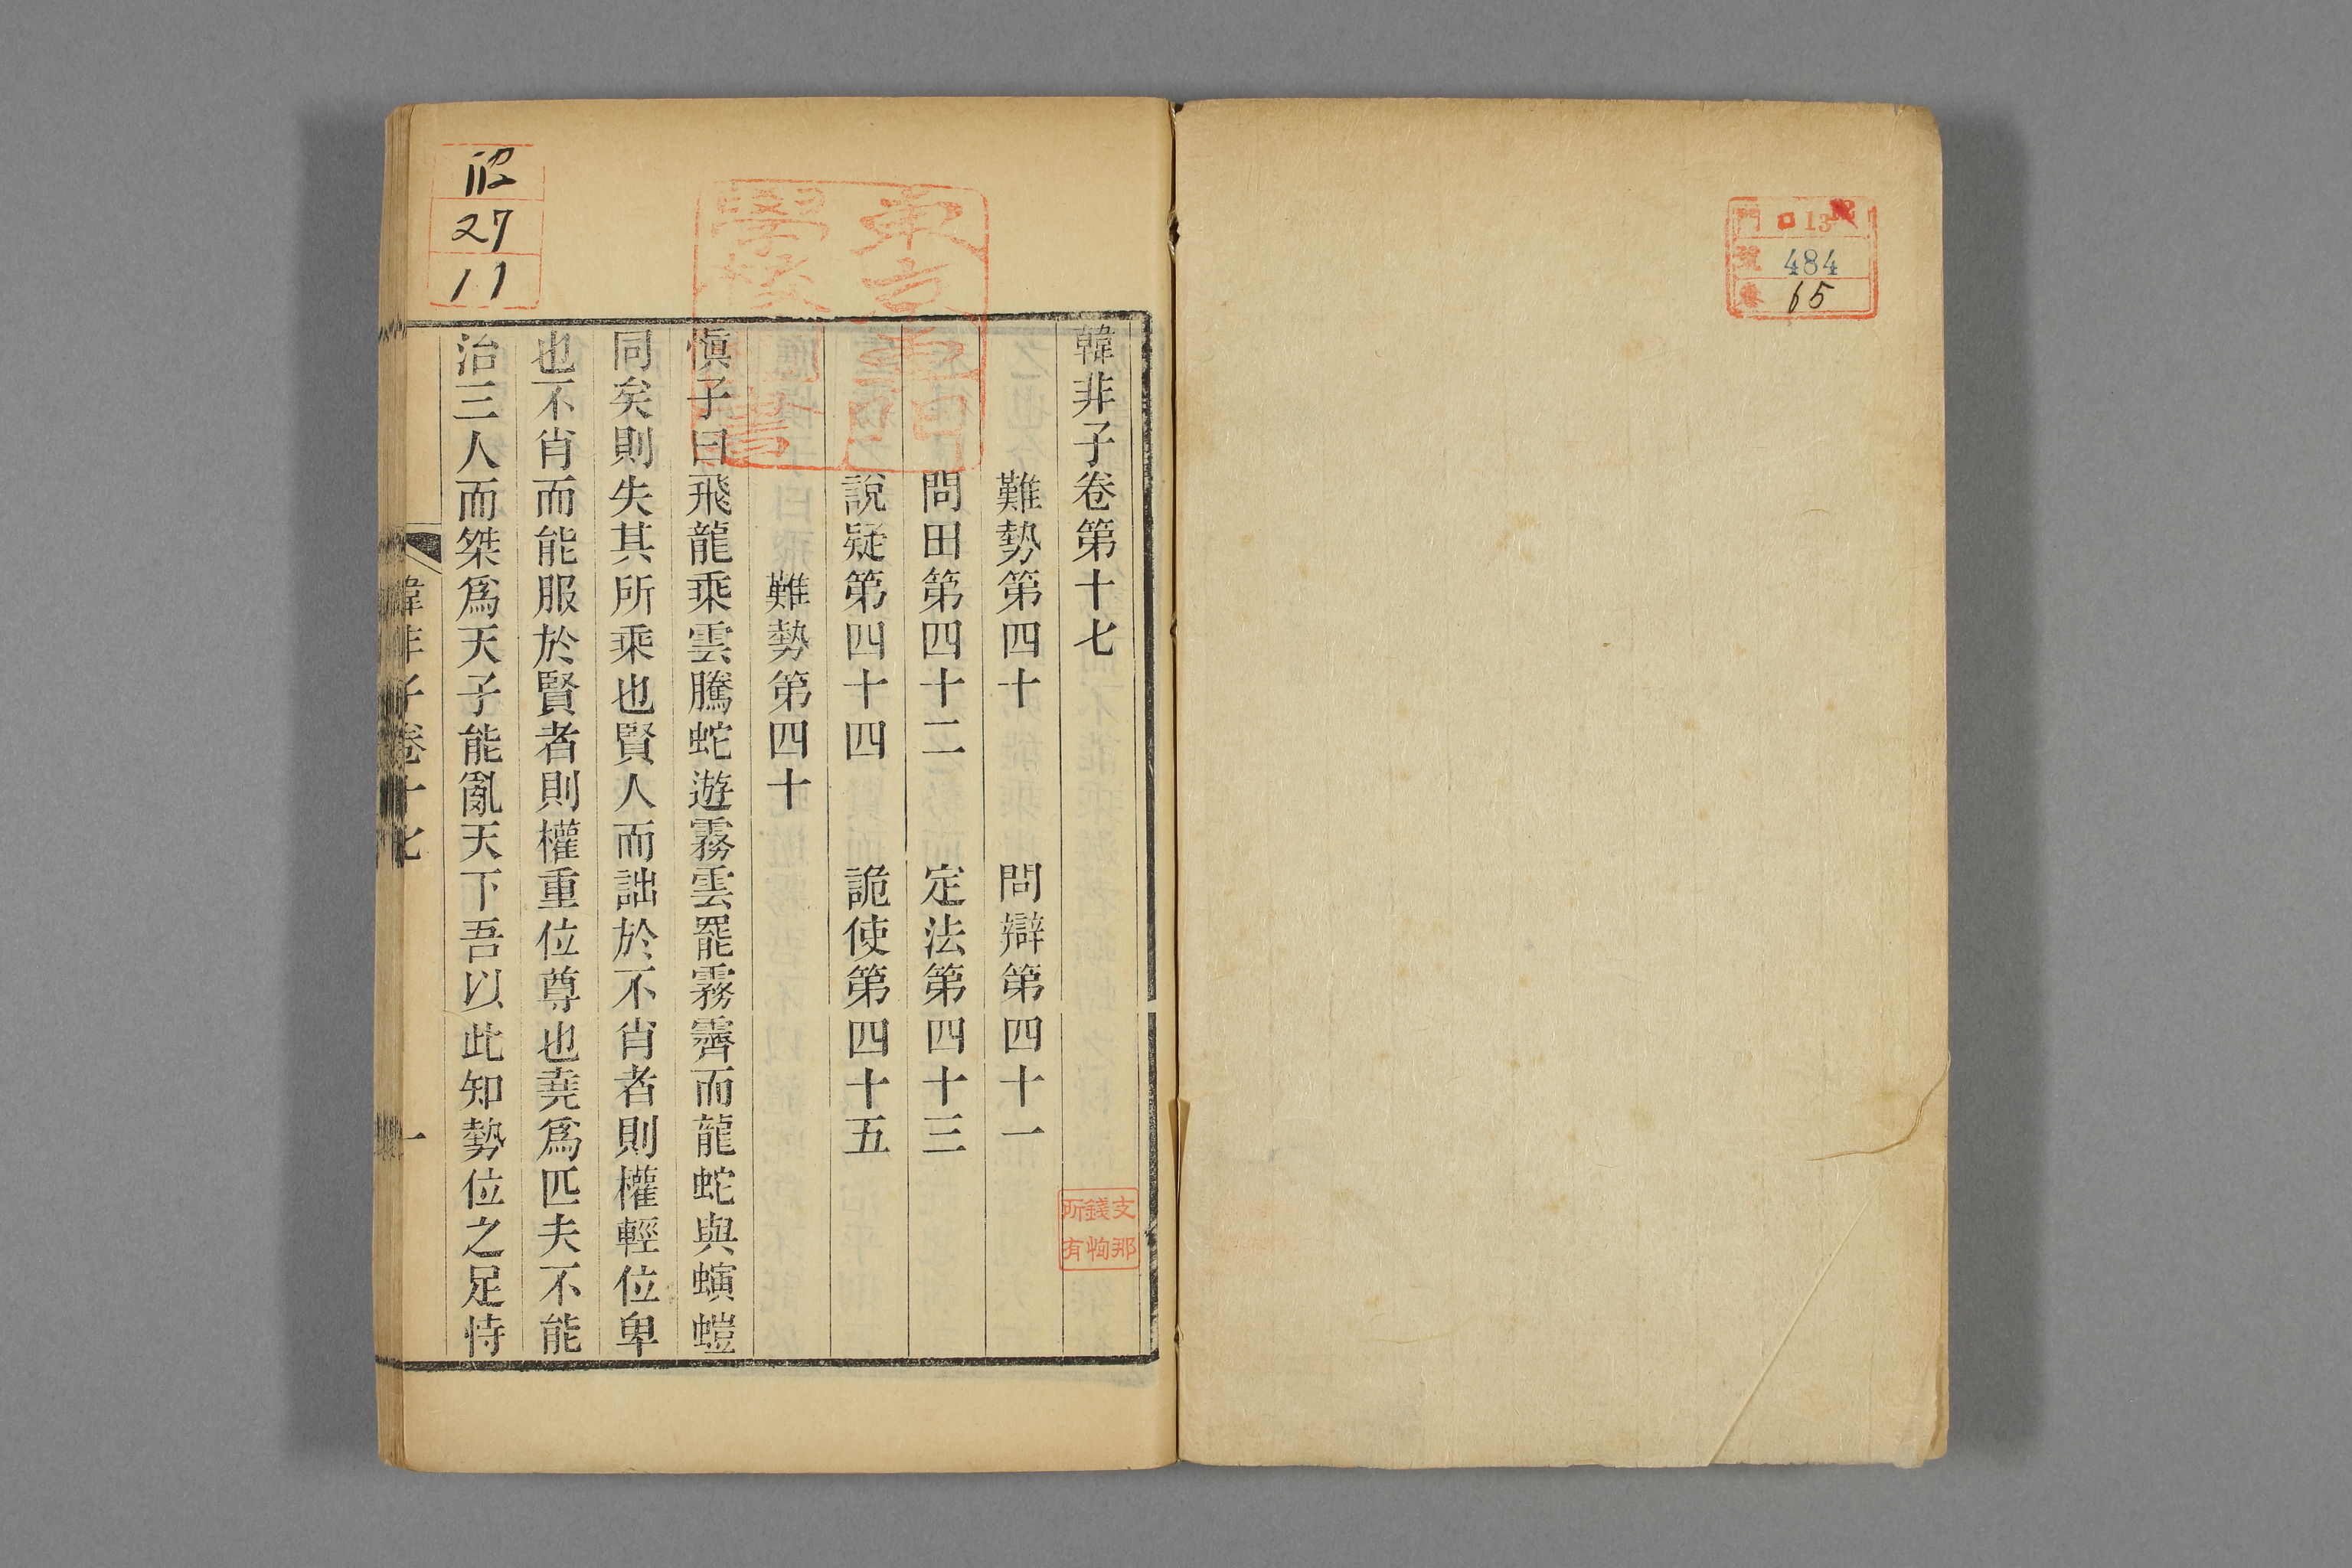 門 ロ13
號 484
卷 65
韓非子卷第十七
難勢第四十 問辯第四十一
問田第四十二 定法第四十三
說疑第四十四 詭使第四十五
難勢第四十
慎子曰飛龍乘雲騰蛇遊霧雲罷霧霽而龍蛇與螾螘
同矣則失其所乘也賢人而詘於不肖者則權輕位卑
也不肖而能服於賢者則權重位尊也堯爲匹夫不能
治三人而桀爲天子能亂天下吾以此知勢位之足恃
韓非子卷十七 一
東京專門
學校圖書
支那
錢恂
所有
27
11